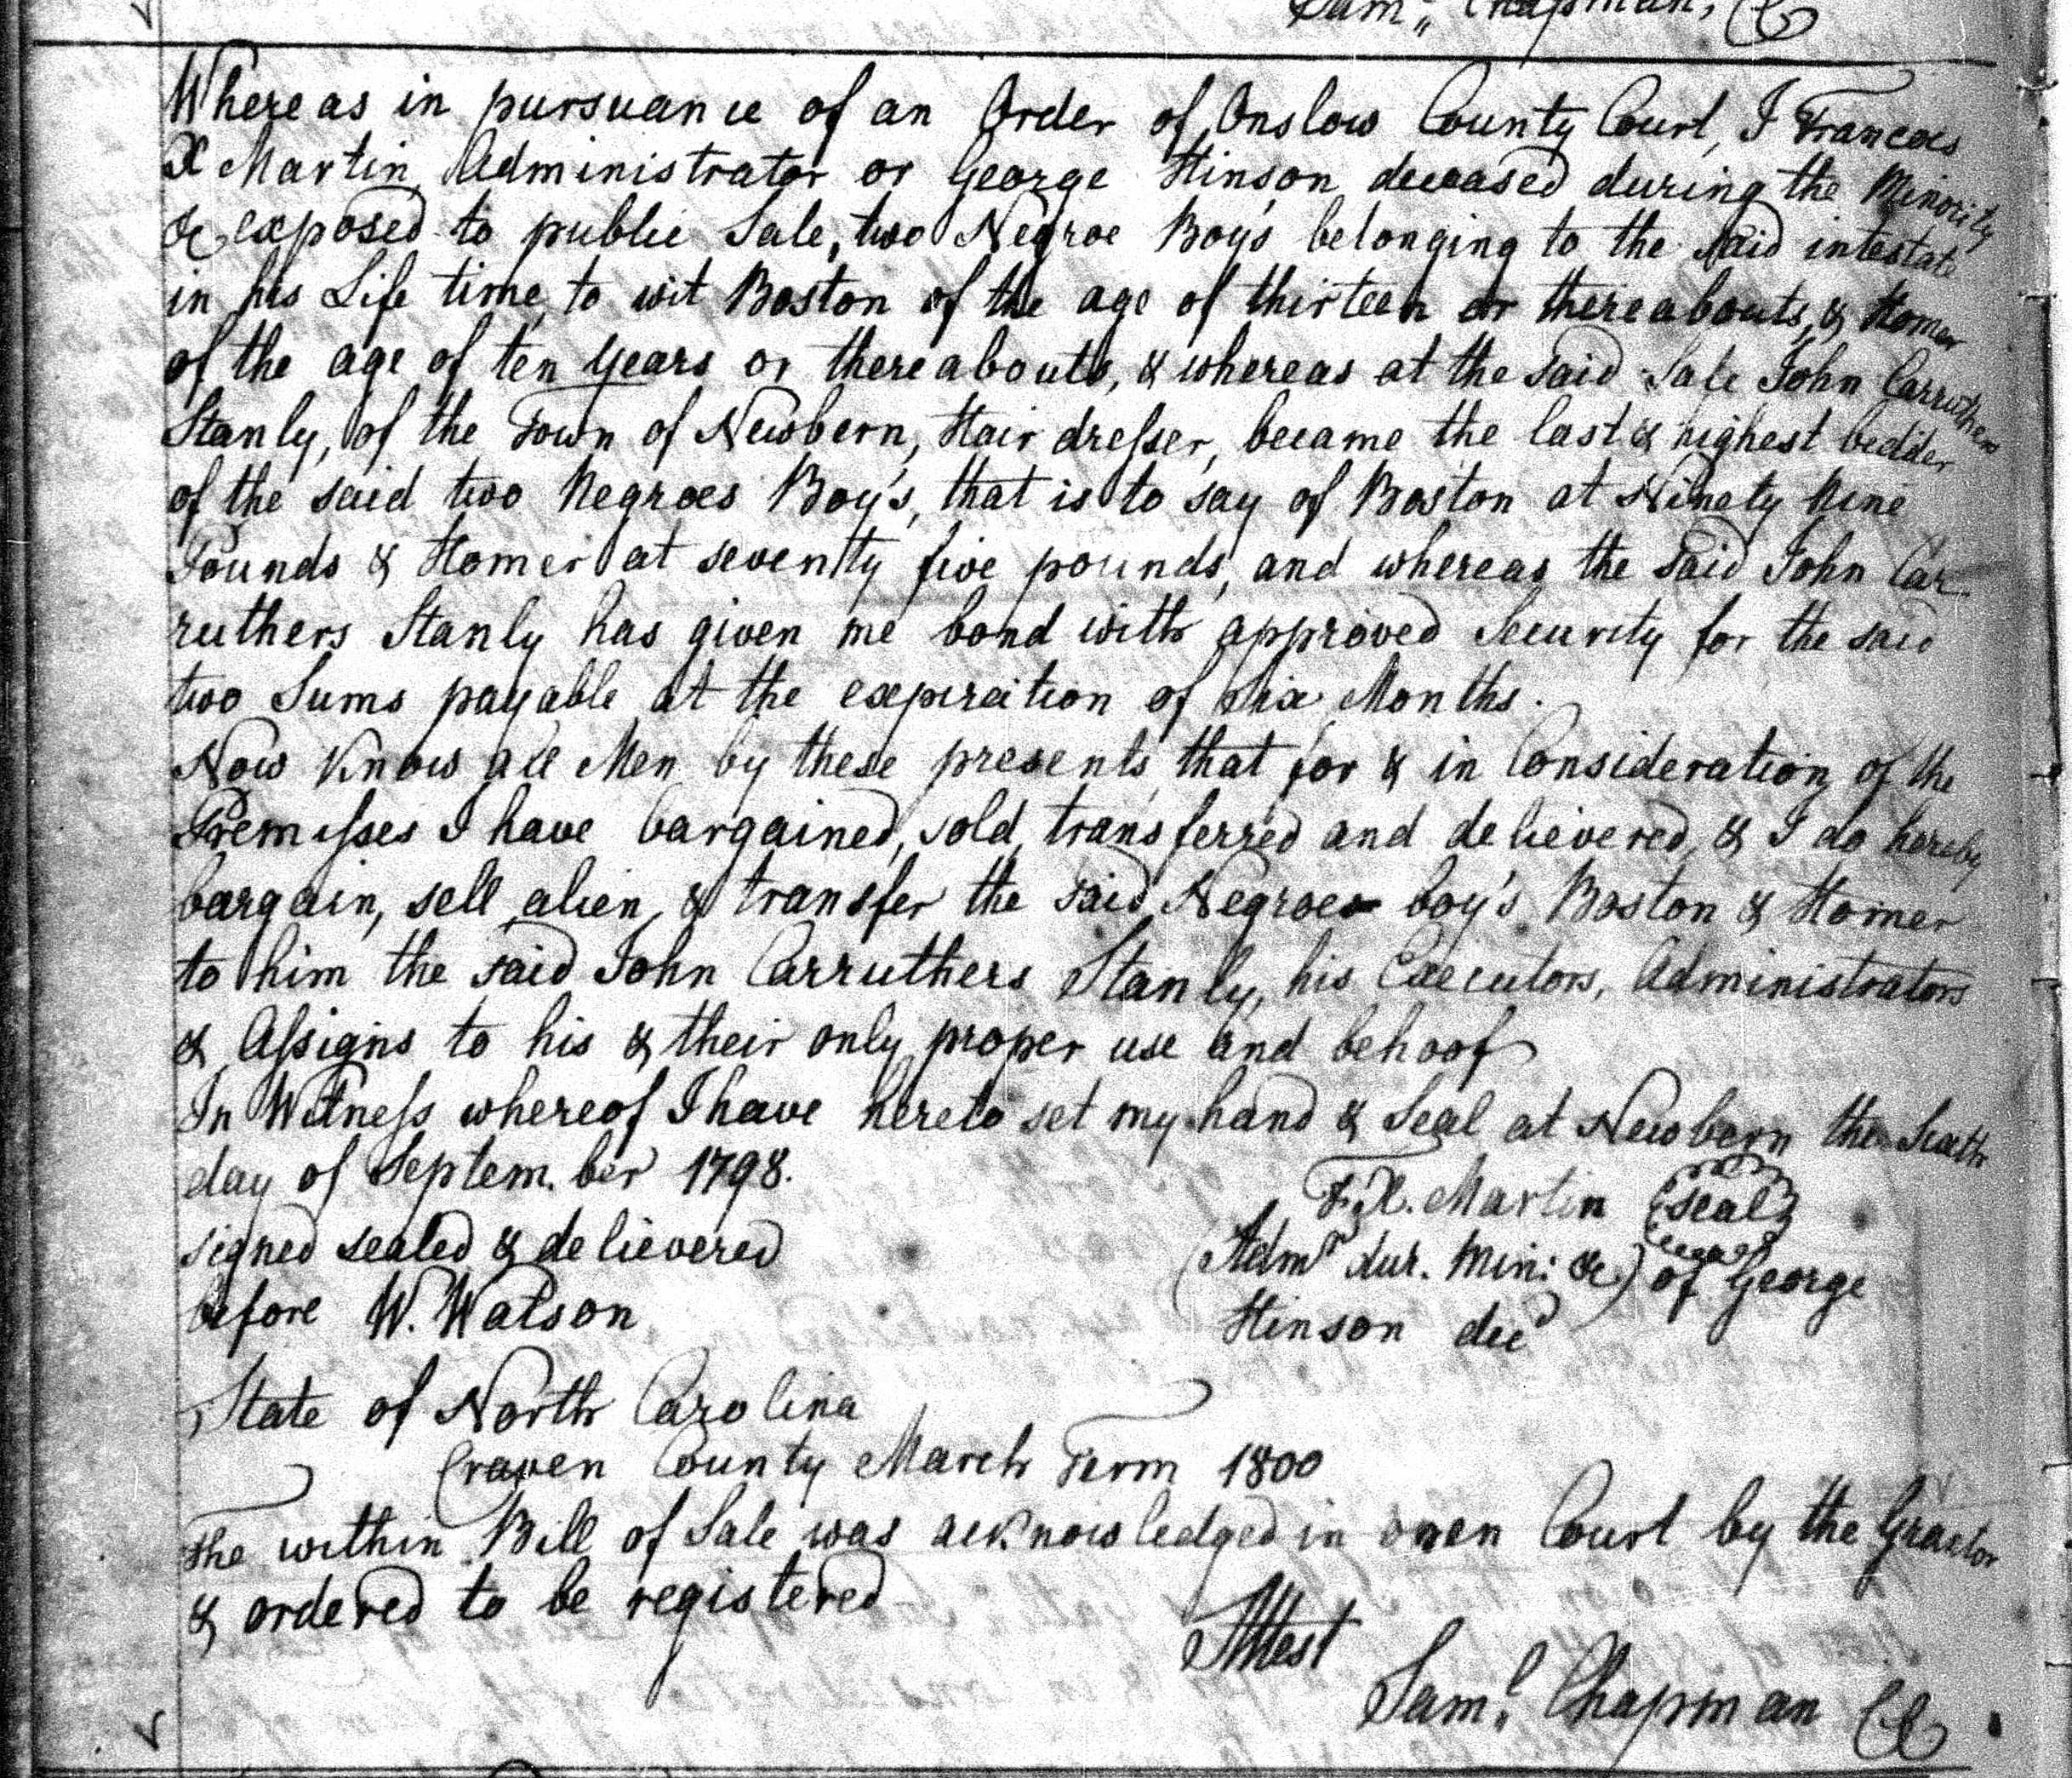 Sam.l Chapman, CC
Whereas in pursuance of an Order of Onslow County Court, I Francois
X Martin, Administrator or George Hinson deceased during the Minority
&c exposed to public Sale, two Negroe Boys belonging to the said intestate
in his Life time, to wit Boston of the age of thirteen or thereabouts, & Homer
of the age of ten years or thereabouts, & whereas at the said Sale John Carruthers
Stanly, of the Town of Newbern, Hair dresser, became the last & highest bidder
of the said two Negroes Boy's, that is to say of Boston at Ninety Nine
Pounds & Homer at seventy five pounds, and whereas the said John Car-
ruthers Stanly has given me bond with approved Security for the said
two Sums payable at the expiration of Six Months.
Now Know all Men by these presents that for & in Consideration of the
Premisses I have bargained, sold, transferred and delievered, & I do hereby
bargain, sell, alien, & transfer the said Negroes boy's Boston & Homer
to him the said John Carruthers Stanly, his Executors, Administrators
& Assigns to his & their only proper use and behoof
In Witness whereof I have hereto set my hand & Seal at Newbern the Sixth
day of Septem.ber 1798.
F. X. Martin (seal)
signed sealed & delievered
(Admr dur. Min: &c) of George
before W. Watson
Hinson decd
State of North Carolina
Craven County March Term 1800
The within Bill of Sale was acknowledged in open Court by the Grantor
& ordered to be registered
Attest
Sam.l Chapman CC